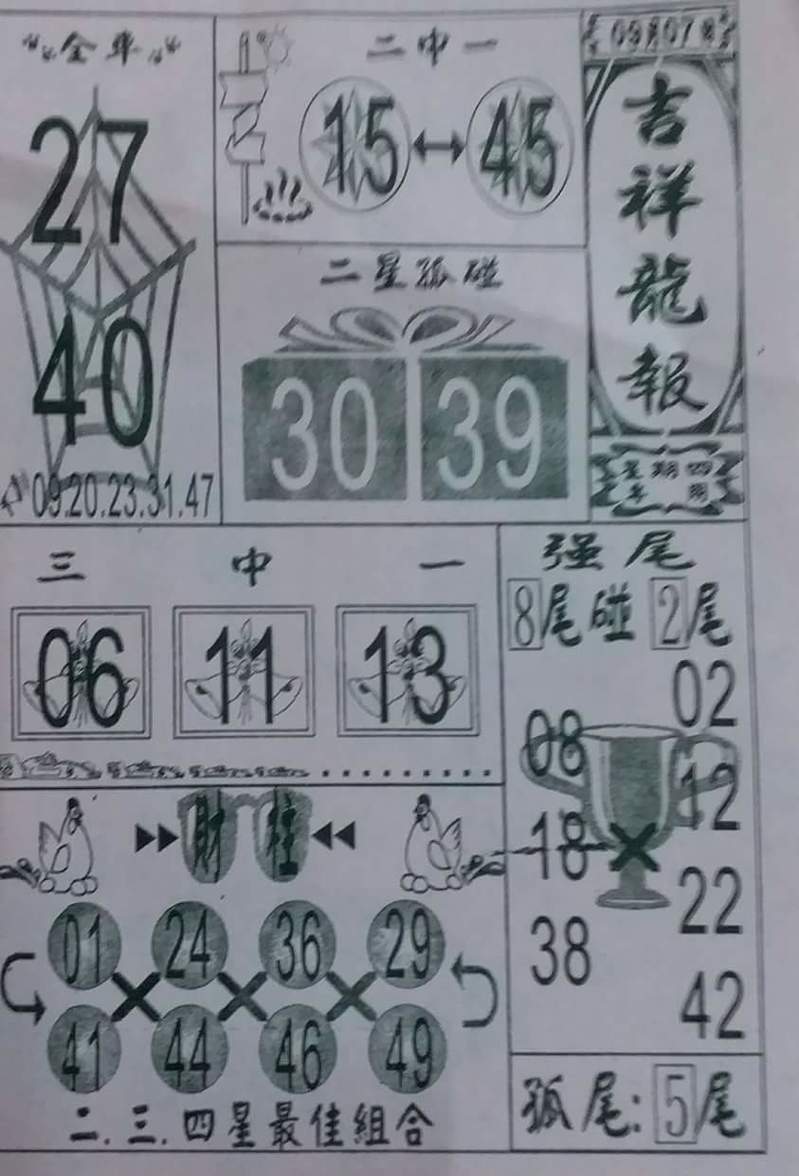 全車
27
40
09.20.23.31.47
二中一
15 45
二星孤碰
30 39
吉祥龍報
星期四
三中一
06 11 13
強尾
8尾碰2尾
02
08
12
18
22
38
42
財柱
01 24 36 29
41 44 46 49
二.三.四星最佳組合
孤尾:5尾